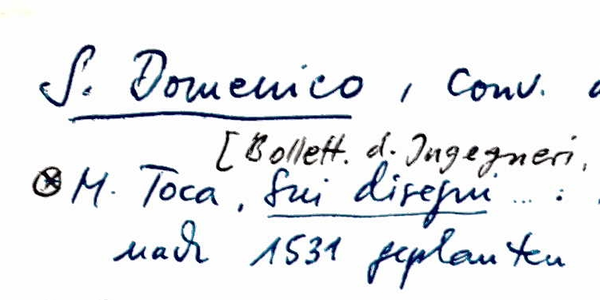 S. Domenico, Conv.
[Bollett. d. Ingegneri,
⊗ M. Toca, Sui disegni ... :
nach 1531 geplanten